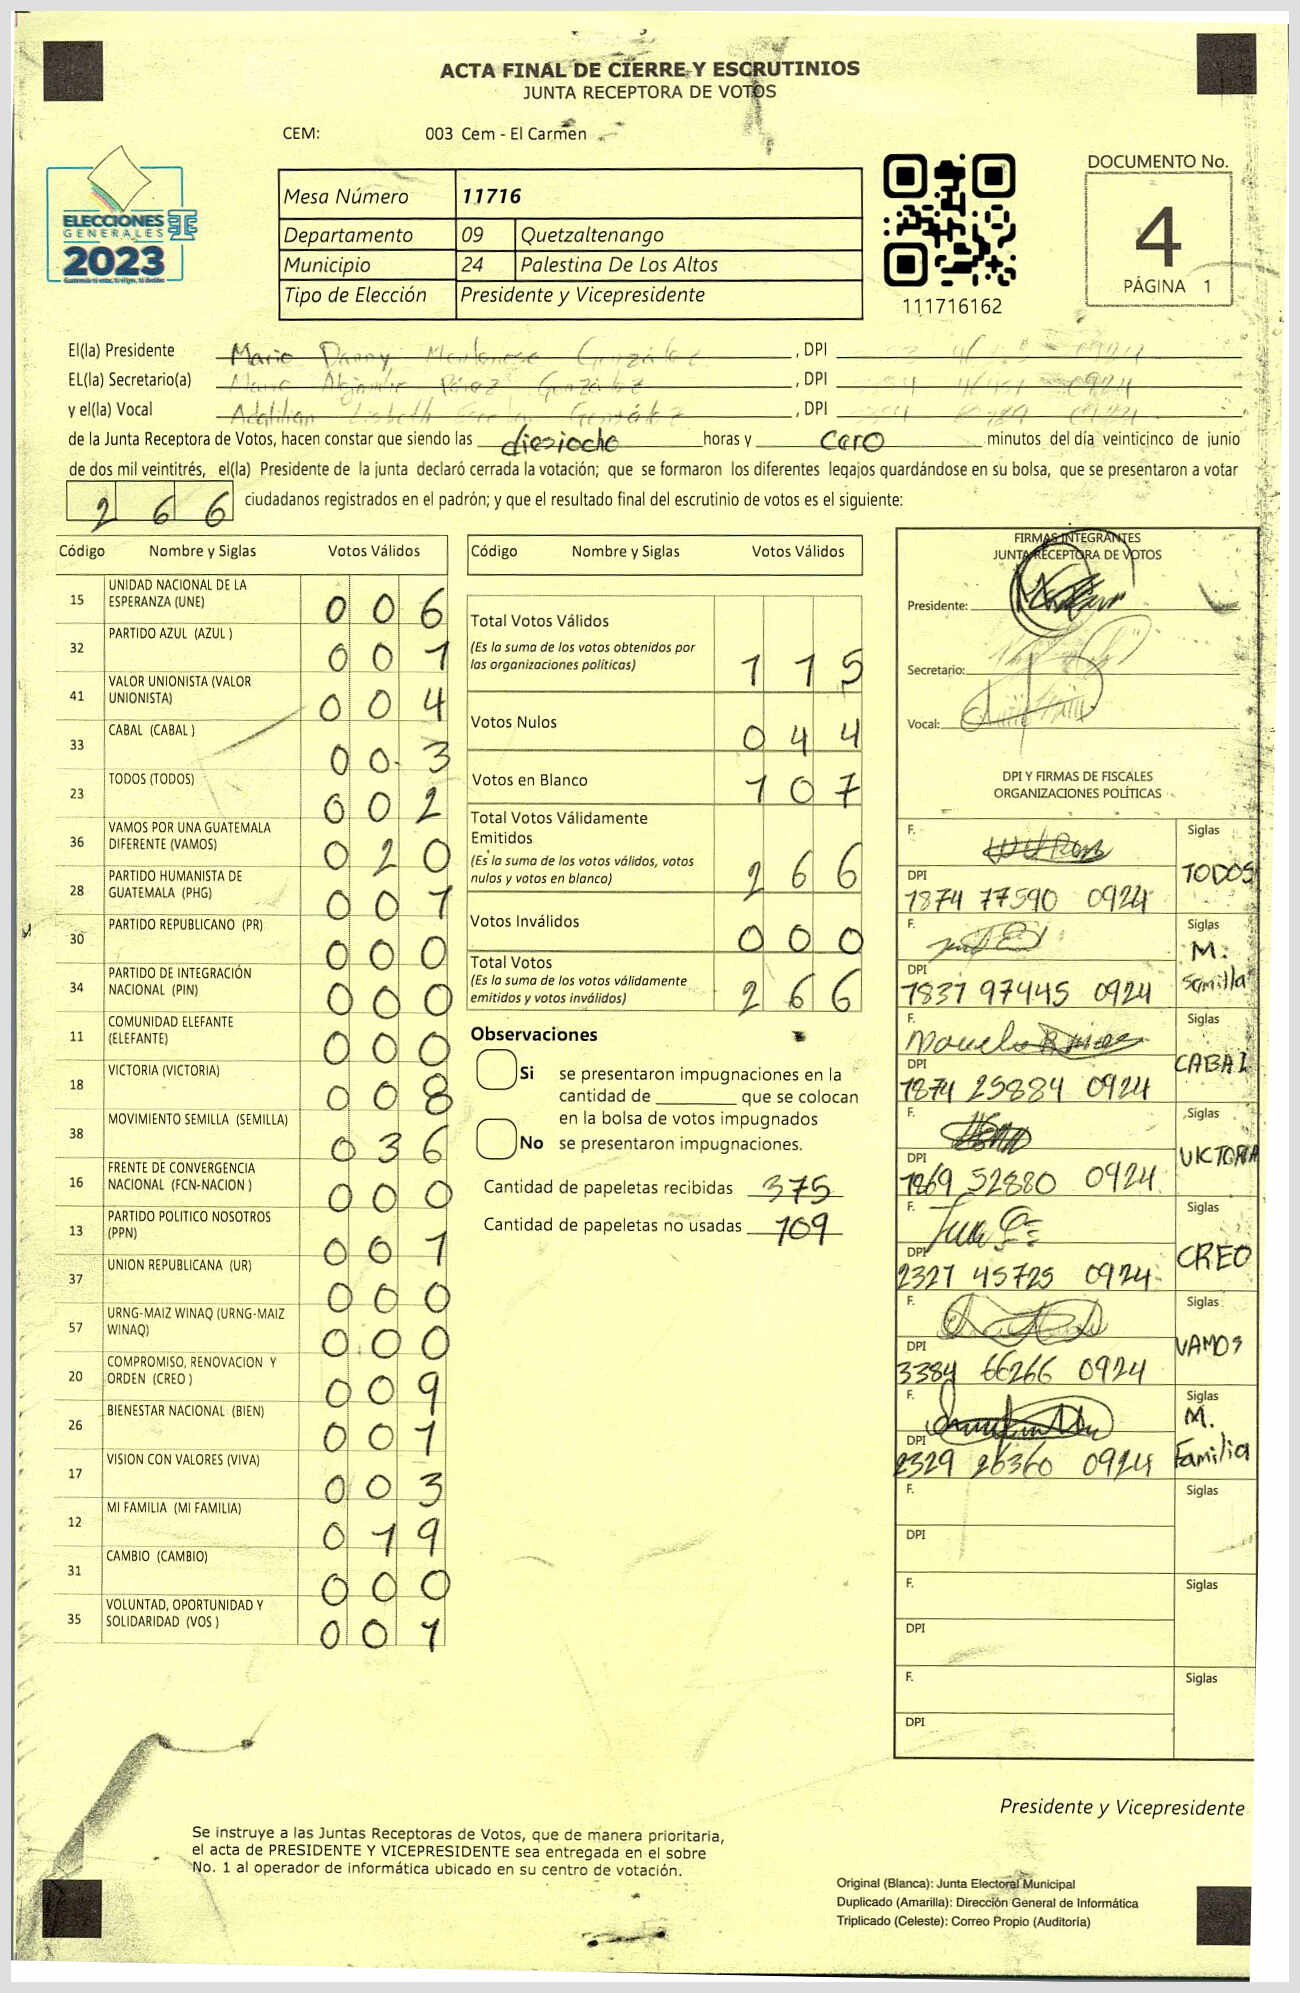 ACTA FINAL DE CIERRE Y ESCRUTINIOS
JUNTA RECEPTORA DE VOTOS
CEM: 003 Cem - El Carmen
ELECCIONES
GENERALES
2023
Mesa Número 11716
Departamento 09 Quetzaltenango
Municipio 24 Palestina De Los Altos
Tipo de Elección Presidente y Vicepresidente
111716162
DOCUMENTO No.
4
PÁGINA 1
El(la) Presidente Mario Danny González , DPI 0924
EL(la) Secretario(a) Pérez González , DPI 0924
y el(la) Vocal Lisbeth González , DPI 0924
de la Junta Receptora de Votos, hacen constar que siendo las diesiocho horas y cero minutos del día veinticinco de junio
de dos mil veintitrés, el(la) Presidente de la junta declaró cerrada la votación; que se formaron los diferentes legajos guardándose en su bolsa, que se presentaron a votar
266 ciudadanos registrados en el padrón; y que el resultado final del escrutinio de votos es el siguiente:
Código Nombre y Siglas Votos Válidos
15 UNIDAD NACIONAL DE LA
ESPERANZA (UNE) 006
32 PARTIDO AZUL (AZUL ) 001
41 VALOR UNIONISTA (VALOR
UNIONISTA) 004
33 CABAL (CABAL ) 003
23 TODOS (TODOS) 002
36 VAMOS POR UNA GUATEMALA
DIFERENTE (VAMOS) 020
28 PARTIDO HUMANISTA DE
GUATEMALA (PHG) 001
30 PARTIDO REPUBLICANO (PR) 000
34 PARTIDO DE INTEGRACIÓN
NACIONAL (PIN) 000
11 COMUNIDAD ELEFANTE
(ELEFANTE) 000
18 VICTORIA (VICTORIA) 008
38 MOVIMIENTO SEMILLA (SEMILLA) 036
16 FRENTE DE CONVERGENCIA
NACIONAL (FCN-NACION ) 000
13 PARTIDO POLITICO NOSOTROS
(PPN) 001
37 UNION REPUBLICANA (UR) 000
57 URNG-MAIZ WINAQ (URNG-MAIZ
WINAQ) 000
20 COMPROMISO, RENOVACION Y
ORDEN (CREO ) 009
26 BIENESTAR NACIONAL (BIEN) 001
17 VISION CON VALORES (VIVA) 003
12 MI FAMILIA (MI FAMILIA) 019
31 CAMBIO (CAMBIO) 000
35 VOLUNTAD, OPORTUNIDAD Y
SOLIDARIDAD (VOS ) 001
Código Nombre y Siglas Votos Válidos
Total Votos Válidos
(Es la suma de los votos obtenidos por
las organizaciones políticas) 115
Votos Nulos 044
Votos en Blanco 107
Total Votos Válidamente
Emitidos
(Es la suma de los votos válidos, votos
nulos y votos en blanco) 266
Votos Inválidos 000
Total Votos
(Es la suma de los votos válidamente
emitidos y votos inválidos) 266
Observaciones
Si se presentaron impugnaciones en la
cantidad de ________ que se colocan
en la bolsa de votos impugnados
No se presentaron impugnaciones.
Cantidad de papeletas recibidas 375
Cantidad de papeletas no usadas 109
FIRMAS INTEGRANTES
JUNTA RECEPTORA DE VOTOS
Presidente:
Secretario:
Vocal:
DPI Y FIRMAS DE FISCALES
ORGANIZACIONES POLÍTICAS
F. Siglas
TODOS
DPI
1874 77590 0924
F. Siglas
M.
Semilla
DPI
1837 97445 0924
F. Siglas
CABAL
DPI
1874 25884 0924
F. Siglas
VICTORIA
DPI
1869 52880 0924
F. Siglas
CREO
DPI
2327 45725 0924
F. Siglas
VAMOS
DPI
3384 66266 0924
F. Siglas
M.
Familia
DPI
2329 26360 0924
F. Siglas
DPI
F. Siglas
DPI
F. Siglas
DPI
Presidente y Vicepresidente
Se instruye a las Juntas Receptoras de Votos, que de manera prioritaria,
el acta de PRESIDENTE Y VICEPRESIDENTE sea entregada en el sobre
No. 1 al operador de informática ubicado en su centro de votación.
Original (Blanca): Junta Electoral Municipal
Duplicado (Amarilla): Dirección General de Informática
Triplicado (Celeste): Correo Propio (Auditoría)